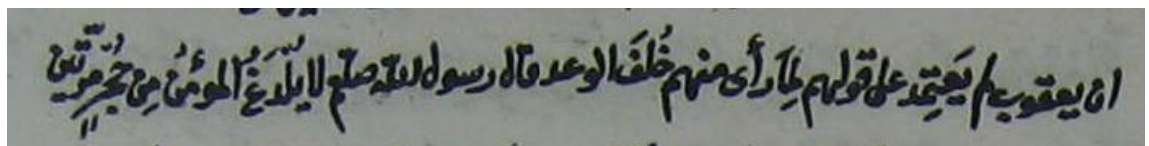 ان يعقوب لم يَعتمِد على قولهم لِمَا رأى منهم خُلفَ الوعد قال رسول الله صلعم لا يُلدَغُ المؤمنُ مِن جُحرٍ مرّتين